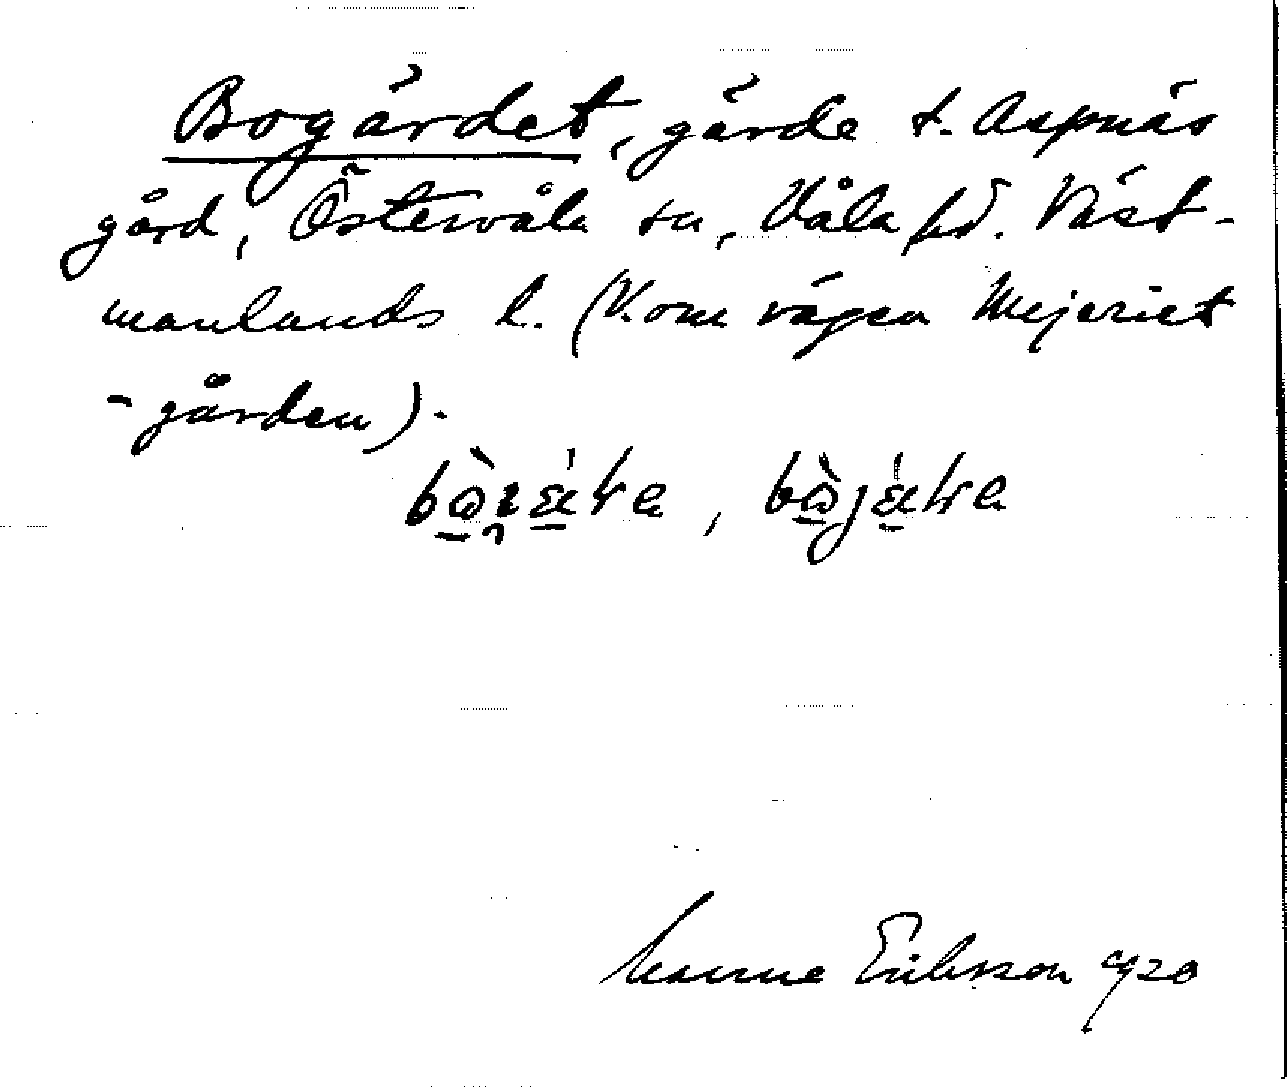 Bogärdet, gärde t. Aspnäs
gård, Östervåla sn, Våla hd. Väst-
manlands l. (V. om vägen Mejeriet
- gården).
Manne Eriksson 1920